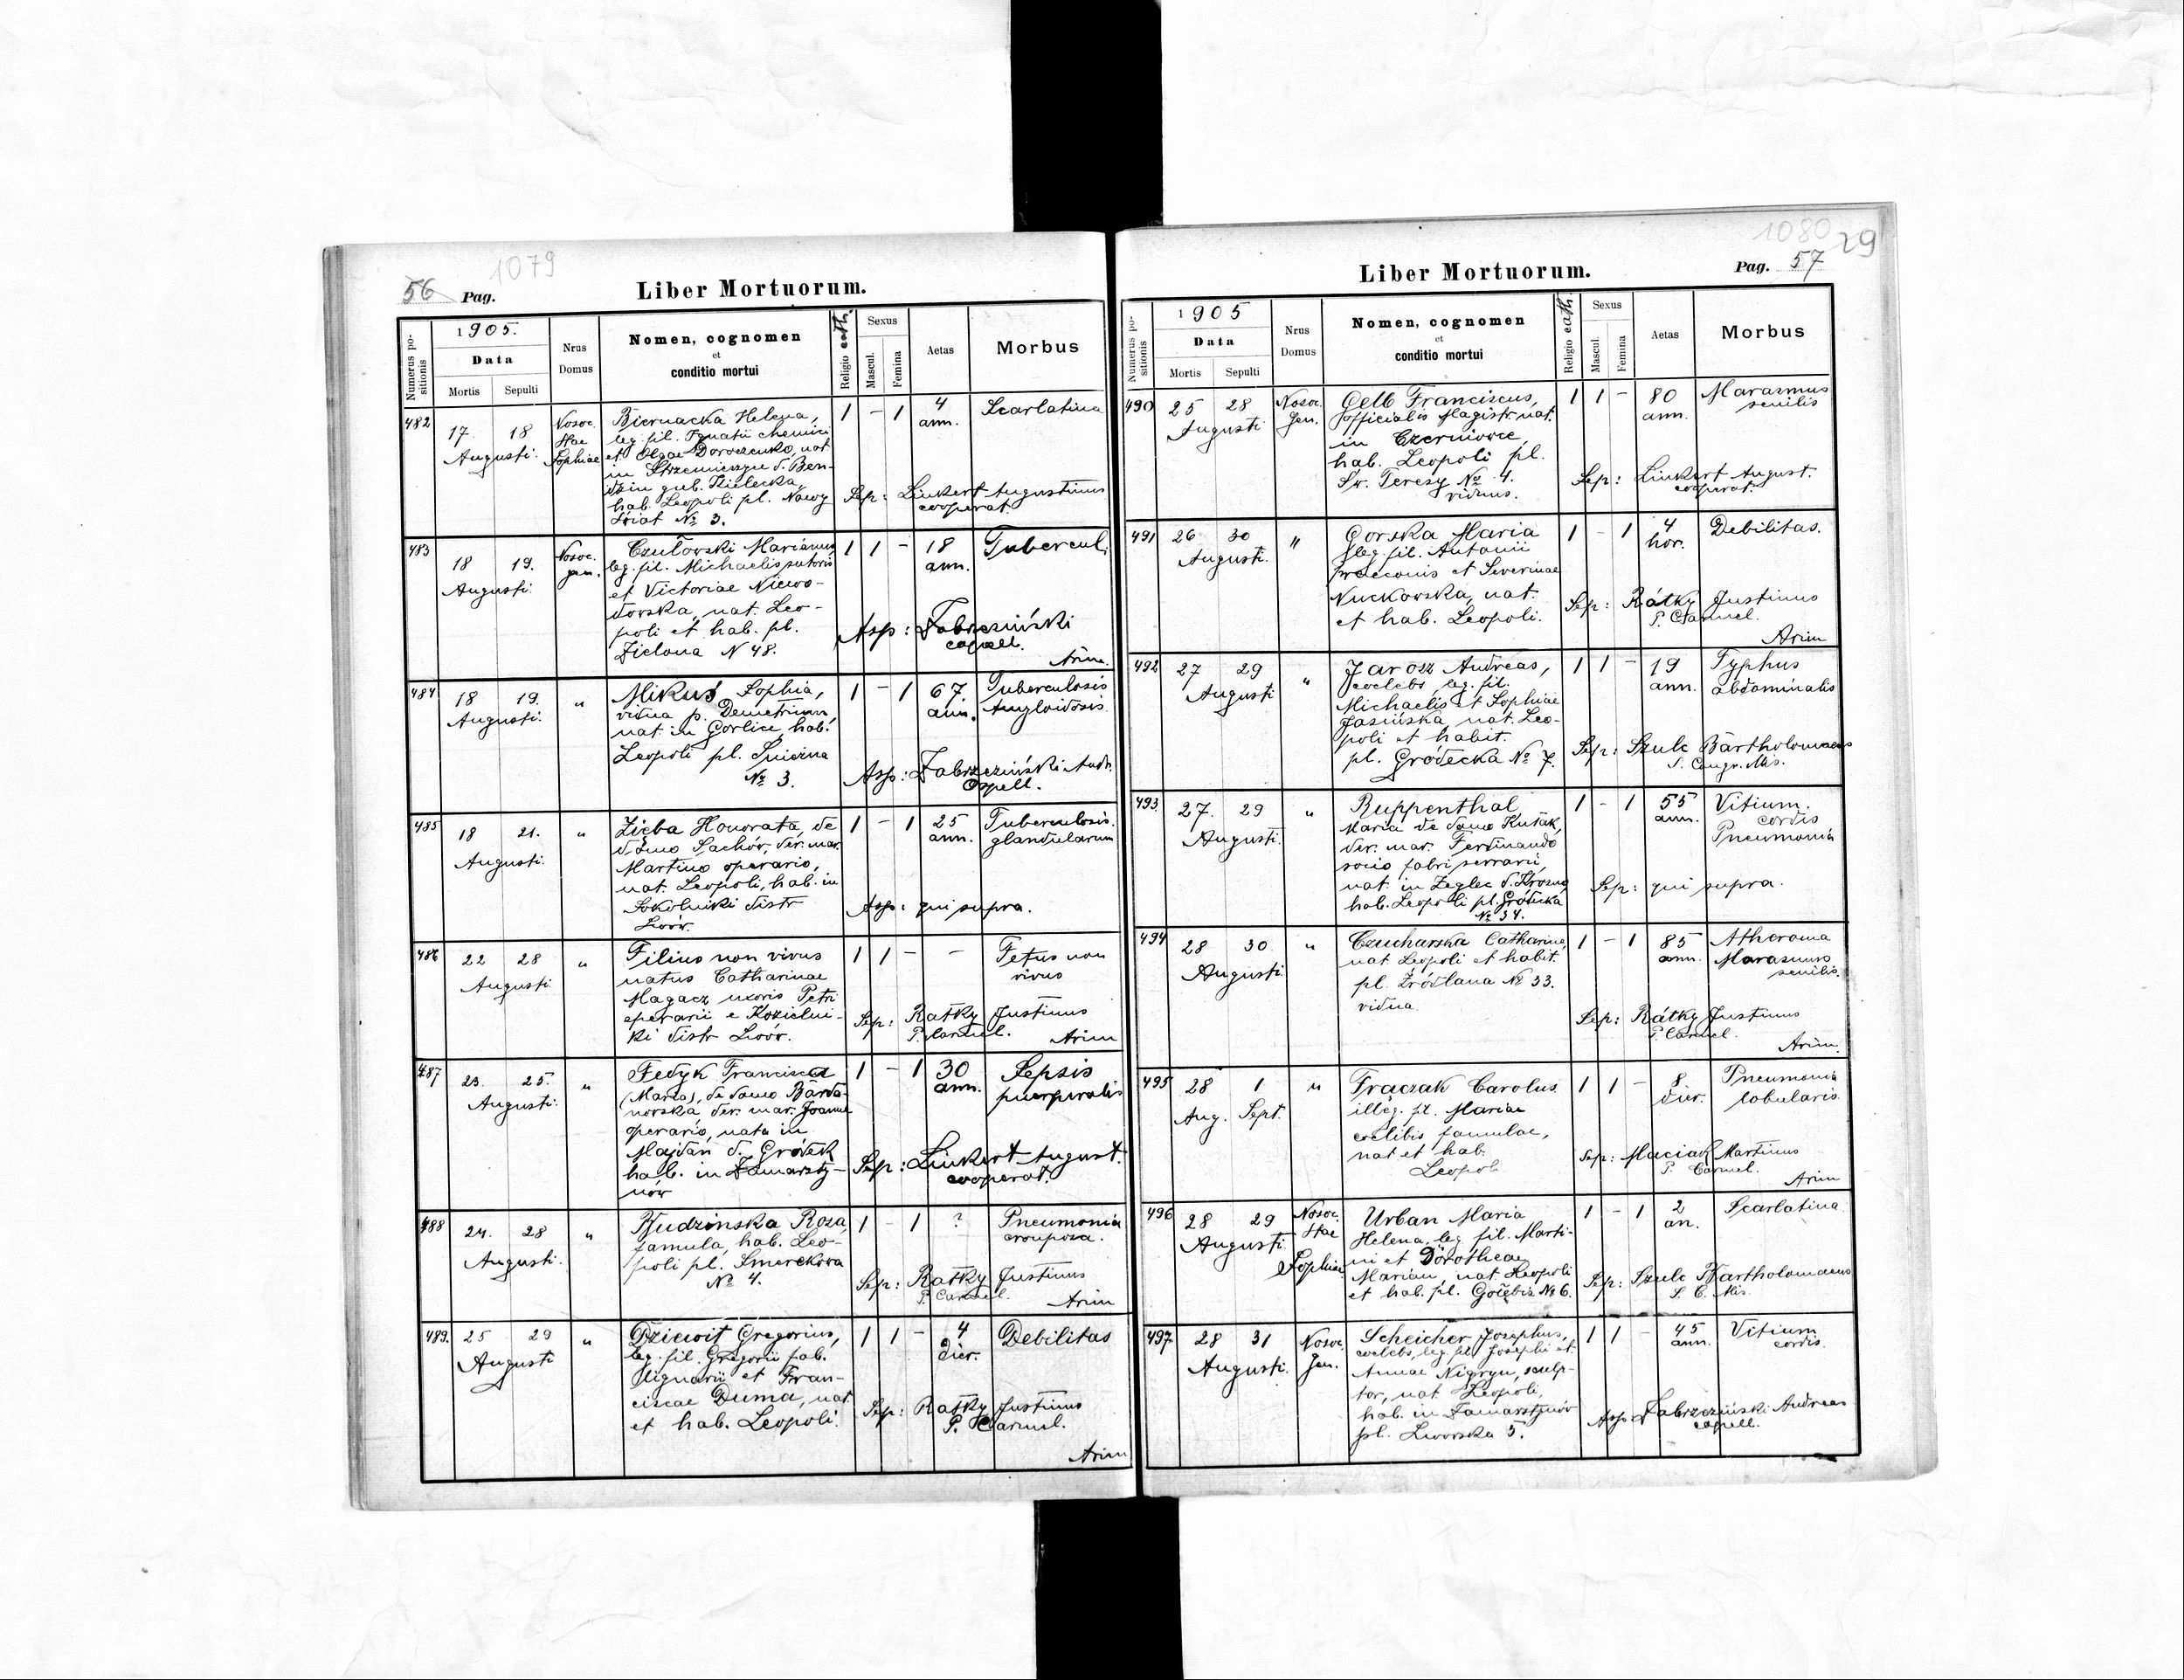 56 Pag.
1079
Liber Mortuorum.
Numerus positionis
1905.
Data
Mortis
Sepulti
Nrus Domus
Nomen, cognomen
et
conditio mortui
Religio cath.
Sexus
Mascul.
Femina
Aetas
Morbus
482
17. 18
Augusti.
Nosoc.
Stae
Sophiae
Biernacka Helena,
leg. fil. Ignatii chemici
et Olgae Doroszenko, nat.
in Strzemieszyce d. Ben-
dzin gub. Kielecka,
hab. Leopoli pl. Nowy
Świat № 3.
1 - 1
4
ann.
Scarlatina
Sep: Linkert Augustinus
cooperat.
483
18 19.
Augusti.
Nosoc.
gen.
Czułowski Marianus
leg. fil. Michaelis sutoris
et Victoriae Niewo-
dowska, nat. Leo-
poli et hab. pl.
Zielona N 48.
1 1 -
18
ann.
Tubercul.
Asp: Zabrzeziński
capell.
Arim.
484
18 19.
Augusti.
"
Mikuś Sophia,
vidua p. Demetrium,
nat. in Gorlice, hab.
Leopoli pl. Śnieżna
№ 3.
1 - 1
67
ann.
Tuberculosis
Amyloidosis.
Asp: Zabrzeziński Andr.
Capell.
485
18 21.
Augusti.
"
Zięba Honorata, de
domo Sachów, der. mar.
Martino operario,
nat. Leopoli, hab. in
Sokolniki distr
Lwów.
1 - 1
25
ann.
Tuberculosis
glandularum
Asp: qui supra.
486
22 28
Augusti
"
Filius non vivus
natus Catharinae
Magacz uxoris Petri
operarii e Kozielni-
ki distr Lwów.
1 1 -
-
Fetus non
vivus
Sep: Rátky Justinus
P. Carmel.
Arim
487
23. 25.
Augusti.
"
Fedyk Francisca
(Maria), de domo Barda-
nowska der. mar. Joanne
operario, nata in
Majdan d. Gródek
hab. in Zamarsty-
nów
1 - 1
30
ann.
Sepsis
puerperalis
Sep: Linkert August.
cooperat.
488
24. 28
Augusti.
"
Kudzinska Rosa,
famula, hab. Leo-
poli pl. Smerekowa
№ 4.
1 - 1
?
Pneumonia
crouposa.
Sep: Rátky Justinus
P. Carmel.
Arim
489.
25 29
Augusti
"
Dziewit Gregorius,
leg. fil. Gregorii fab.
lignarii et Fran-
ciscae Duma, nat.
et hab. Leopoli.
1 1 -
4
dier.
Debilitas
Sep: Rátky Justinus
P. Carmel.
Arim
1080
29
Liber Mortuorum.
Pag. 57
Numerus positionis
1905
Data
Mortis
Sepulti
Nrus Domus
Nomen, cognomen
et
conditio mortui
Religio cath.
Sexus
Mascul.
Femina
Aetas
Morbus
490
25 28
Augusti
Nosoc.
Gen.
Oelb Franciscus,
officialis Magistr. nat.
in Czerniowce,
hab. Leopoli pl.
Św. Teresy № 4.
viduus.
1 1 -
80
ann.
Marasmus
senilis
Sep: Linkert August.
cooperat.
491
26 30
Augusti.
"
Gorska Maria
leg. fil. Antonii
praeconis et Severinae
Nuckowska, nat.
et hab. Leopoli.
1 - 1
4
hor.
Debilitas.
Sep: Rátky Justinus
P. Carmel.
Arim
492
27 29
Augusti
"
Jarosz Andreas,
coelebs, leg. fil.
Michaelis et Sophiae
Jasińska, nat. Leo-
poli et habit.
pl. Gródecka № 7.
1 1 -
19
ann.
Typhus
abdominalis
Sep: Szulc Bartholomaeus
S. Congr. Mis.
493
27. 29
Augusti.
"
Ruppenthal
Maria de domo Kuśak,
der. mar. Ferdinando
socio fabri serrarii,
nat. in Żeglec d. Krosno
hab. Leopoli pl. Gródecka
№ 34.
1 - 1
55
ann.
Vitium.
cordis
Pneumonia
Sep: qui supra.
494
28 30.
Augusti
"
Czucharska Catharina,
nat Leopoli et habit.
pl. Źródlana № 33.
vidua.
1 - 1
85
ann.
Atheroma
Marasmus
senilis.
Sep: Rátky Justinus
P. Carmel.
Arim.
495
28 1
Aug. Sept.
"
Frączak Carolus
illeg. fil. Mariae
coelibis famulae,
nat et hab.
Leopoli
1 1 -
8
dier.
Pneumonia
lobularis.
Sep: Maciak Martinus
P. Carmel.
Arim
496
28 29
Augusti
Nosoc.
Stae
Sophiae
Urban Maria
Helena, leg. fil. Marti-
ni et Dorotheae
Marian, nat. Leopoli
et hab. pl. Gołębia № 6.
1 - 1
2
an.
Scarlatina
Sep: Szulc Bartholomaeus
S. C. Mis.
497
28 31
Augusti.
Nosoc.
Gen.
Scheicher Josephus,
coelebs, leg. fil. Josephi et
Annae Nigryn, sculp-
tor, nat. Leopoli,
hab. in Zamarstynów
pl. Lwowska 5.
1 1 -
45
ann.
Vitium
cordis.
Asp: Zabrzeziński Andreas
capell.